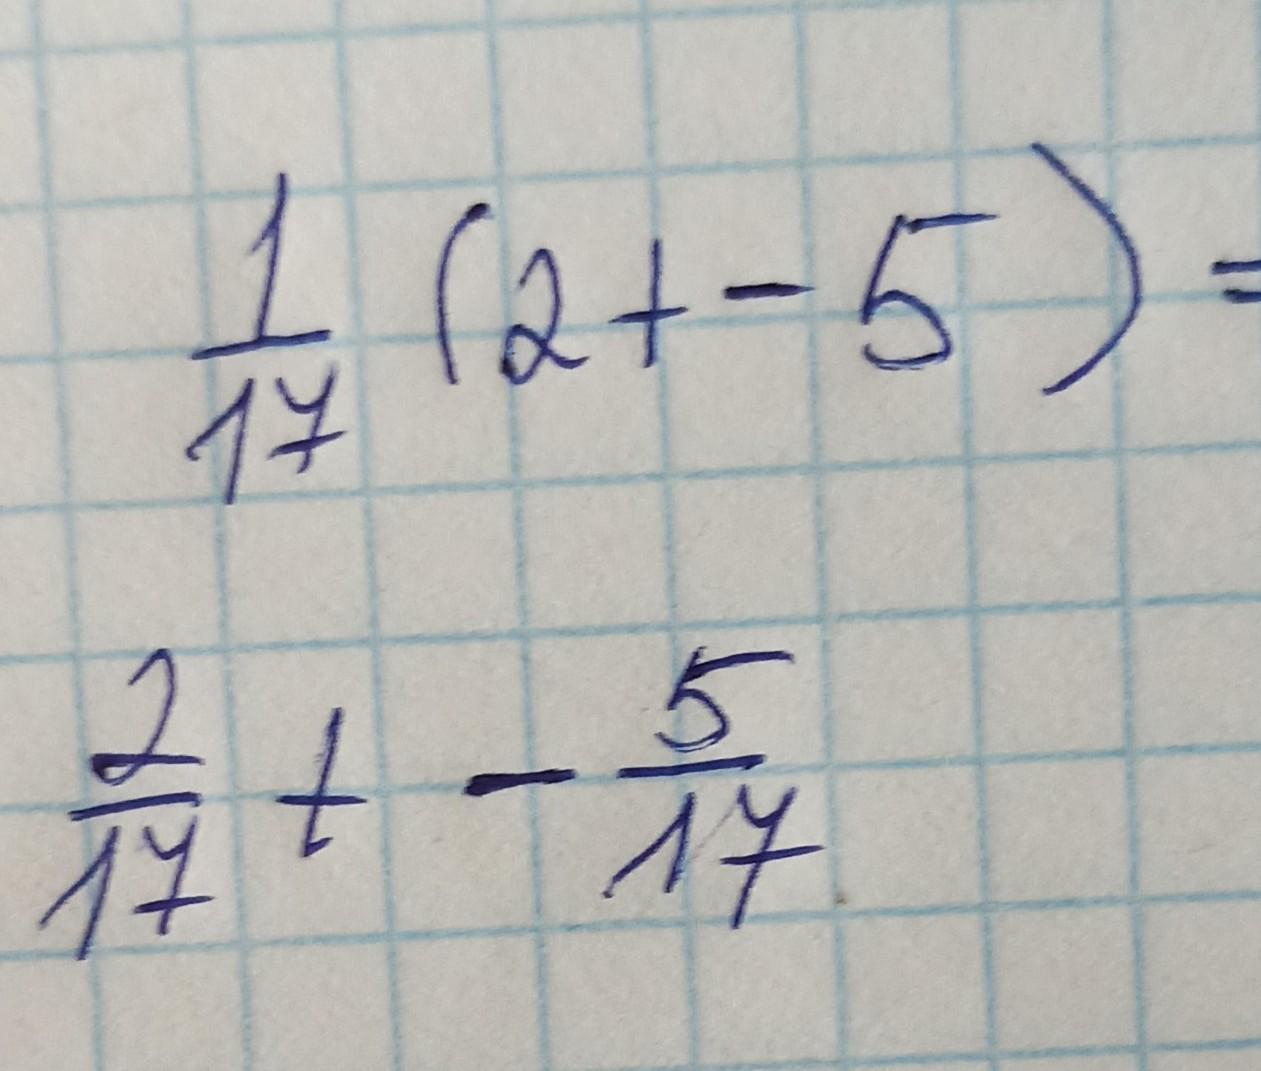 1/17 (2+-5) =
2/17 + - 5/17